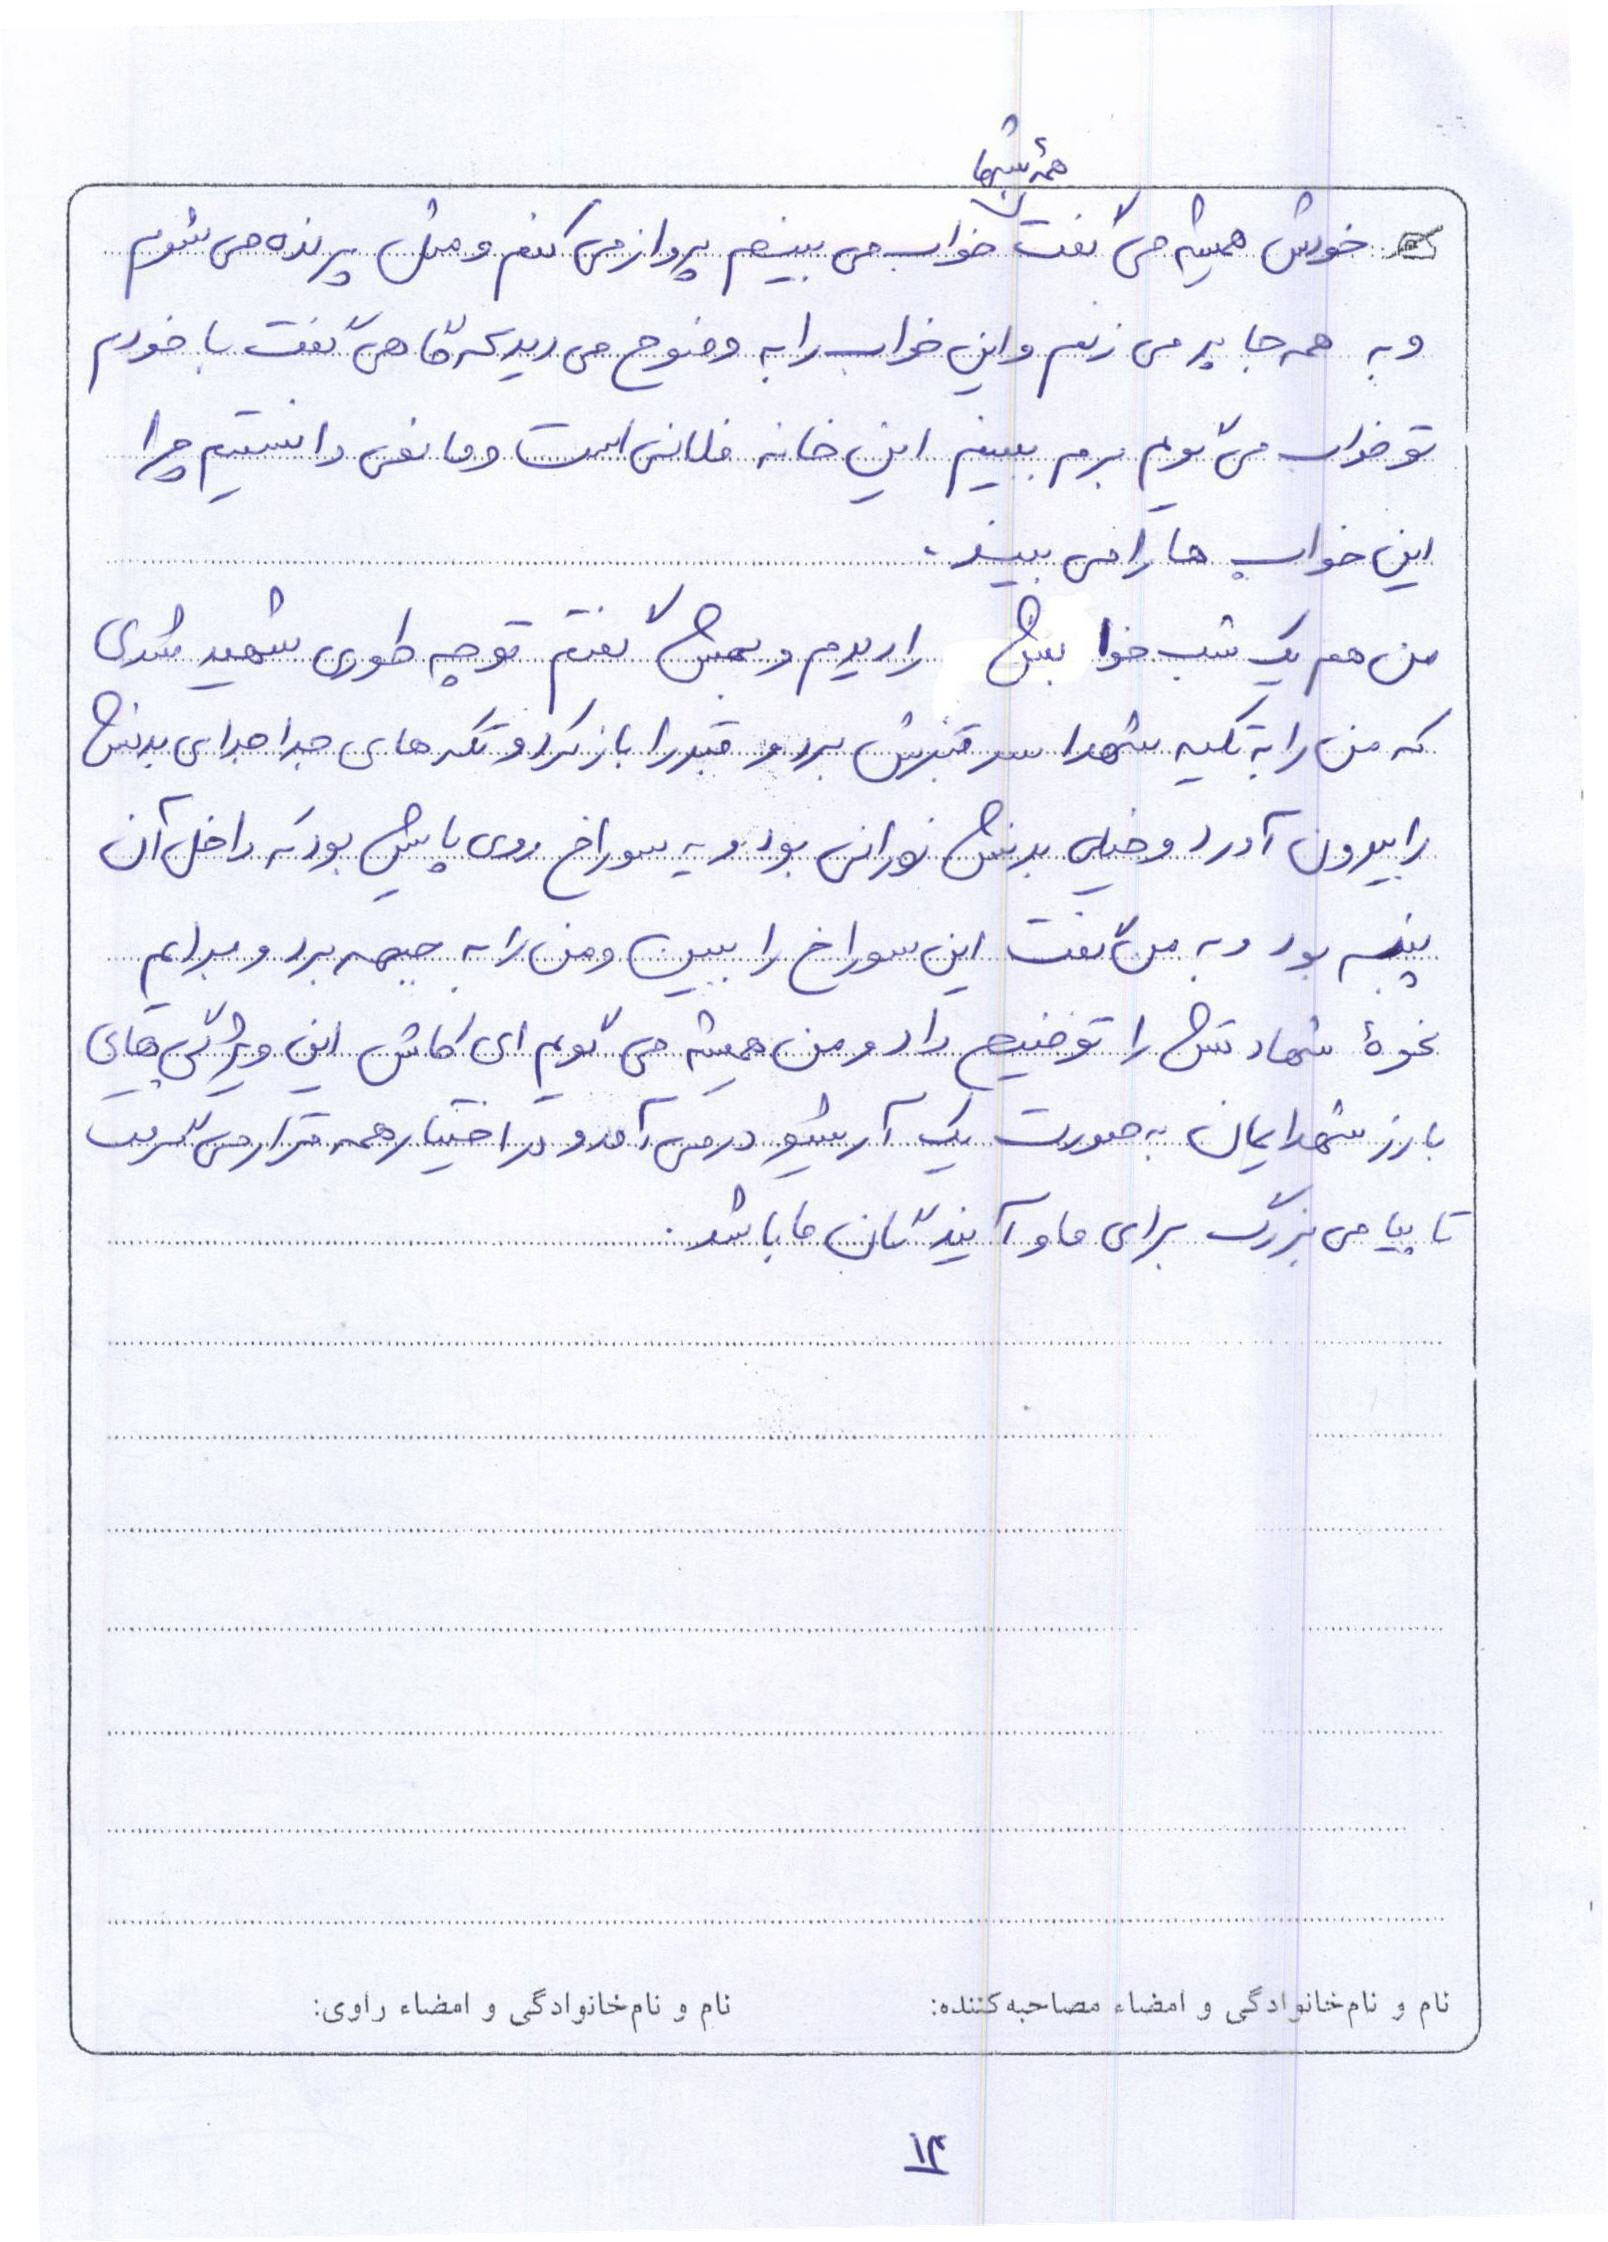 همهٔ شبها
خودش همیشه می گفت خواب می بینم پرواز می کنم و مثل پرنده می شوم
و به همه جا پر می زنم و این خواب را به وضوح می دید که گاهی گفت با خودم
تو خواب می گویم برم ببینم این خانه فلانی است و ما نمی دانستیم چرا
این خواب ها را می بیند.
من هم یک شب خوابش را دیدم و بهش گفتم تو چه طوری شهید شدی
که من را به تکیه شهدا سر قبرش برد و قبر را باز کرد و تکه های جدا جدای بدنش
را بیرون آورد و خیلی بدنش نورانی بود و یه سوراخ روی پایش بود که داخل آن
پنبه بود و به من گفت این سوراخ را ببین و من را به جبهه برد و برایم
نحوهٔ شهادتش را توضیح داد و من همیشه می گویم ای کاش این ویژگی های
بارز شهدایمان به صورت یک آرشیو در می آمد و در اختیار همه قرار می گرفت
تا پیامی بزرگ برای ما و آیندگان ما باشد.
نام و نام‌خانوادگی و امضاء مصاحبه‌کننده: نام و نام‌خانوادگی و امضاء راوی:
۱۴